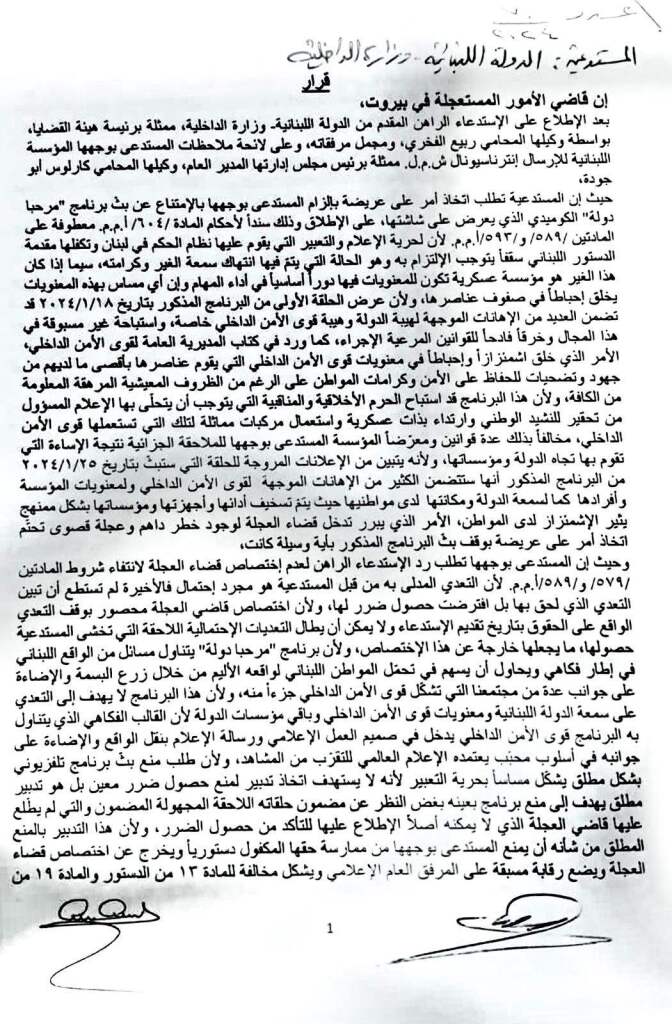 عدد ٧٠
٢٠٢٤
المستدعية : الدولة اللبنانية - وزارة الداخلية
قرار
إن قاضي الأمور المستعجلة في بيروت،
بعد الإطلاع على الإستدعاء الراهن المقدم من الدولة اللبنانية- وزارة الداخلية، ممثلة برئيسة هيئة القضايا،
بواسطة وكيلها المحامي ربيع الفخري، ومجمل مرفقاته، وعلى لائحة ملاحظات المستدعى بوجهها المؤسسة
اللبنانية للإرسال إنترناسيونال ش.م.ل. ممثلة برئيس مجلس إدارتها المدير العام، وكيلها المحامي كارلوس أبو
جودة،
حيث إن المستدعية تطلب اتخاذ أمر على عريضة بإلزام المستدعى بوجهها بالإمتناع عن بث برنامج "مرحبا
دولة" الكوميدي الذي يعرض على شاشتها، على الإطلاق وذلك سنداً لأحكام المادة /٦٠٤/ أ.م.م. معطوفة على
المادتين /٥٨٩/ و/٥٩٣/أ.م.م. لأن لحرية الإعلام والتعبير التي يقوم عليها نظام الحكم في لبنان وتكفلها مقدمة
الدستور اللبناني سقفاً يتوجب الإلتزام به وهو الحالة التي يتم فيها انتهاك سمعة الغير وكرامته، سيما إذا كان
هذا الغير هو مؤسسة عسكرية تكون للمعنويات فيها دوراً أساسياً في أداء المهام وإن أي مساس بهذه المعنويات
يخلق إحباطاً في صفوف عناصرها، ولأن عرض الحلقة الأولى من البرنامج المذكور بتاريخ ٢٠٢٤/١/١٨ قد
تضمن العديد من الإهانات الموجهة لهيبة الدولة وهيبة قوى الأمن الداخلي خاصة، واستباحة غير مسبوقة في
هذا المجال وخرقاً فادحاً للقوانين المرعية الإجراء، كما ورد في كتاب المديرية العامة لقوى الأمن الداخلي،
الأمر الذي خلق اشمئزازاً وإحباطاً في معنويات قوى الأمن الداخلي التي يقوم عناصرها بأقصى ما لديهم من
جهود وتضحيات للحفاظ على الأمن وكرامات المواطن على الرغم من الظروف المعيشية المرهقة المعلومة
من الكافة، ولأن هذا البرنامج قد استباح الحرم الأخلاقية والمناقبية التي يتوجب أن يتحلّى بها الإعلام المسؤول
من تحقير للنشيد الوطني وارتداء بذات عسكرية واستعمال مركبات مماثلة لتلك التي تستعملها قوى الأمن
الداخلي، مخالفاً بذلك عدة قوانين ومعرّضاً المؤسسة المستدعى بوجهها للملاحقة الجزائية نتيجة الإساءة التي
تقوم بها تجاه الدولة ومؤسساتها، ولأنه يتبين من الإعلانات المروجة للحلقة التي ستبث بتاريخ ٢٠٢٤/١/٢٥
من البرنامج المذكور أنها ستتضمن الكثير من الإهانات الموجهة لقوى الأمن الداخلي ولمعنويات المؤسسة
وأفرادها كما لسمعة الدولة ومكانتها لدى مواطنيها حيث يتم تسخيف أدائها وأجهزتها ومؤسساتها بشكل ممنهج
يثير الإشمئزاز لدى المواطن، الأمر الذي يبرر تدخل قضاء العجلة لوجود خطر داهم وعجلة قصوى تحتّم
اتخاذ أمر على عريضة بوقف بث البرنامج المذكور بأية وسيلة كانت،
وحيث إن المستدعى بوجهها تطلب رد الإستدعاء الراهن لعدم إختصاص قضاء العجلة لانتفاء شروط المادتين
/٥٧٩/ و/٥٨٩/أ.م.م. لأن التعدي المدلى به من قبل المستدعية هو مجرد إحتمال فالأخيرة لم تستطع أن تبين
التعدي الذي لحق بها بل افترضت حصول ضرر لها، ولأن اختصاص قاضي العجلة محصور بوقف التعدي
الواقع على الحقوق بتاريخ تقديم الإستدعاء ولا يمكن أن يطال التعديات الإحتمالية اللاحقة التي تخشى المستدعية
حصولها، ما يجعلها خارجة عن هذا الإختصاص، ولأن برنامج "مرحبا دولة" يتناول مسائل من الواقع اللبناني
في إطار فكاهي ويحاول أن يسهم في تحمّل المواطن اللبناني لواقعه الأليم من خلال زرع البسمة والإضاءة
على جوانب عدة من مجتمعنا التي تشكّل قوى الأمن الداخلي جزءاً منه، ولأن هذا البرنامج لا يهدف إلى التعدي
على سمعة الدولة اللبنانية ومعنويات قوى الأمن الداخلي وباقي مؤسسات الدولة لأن القالب الفكاهي الذي يتناول
به البرنامج قوى الأمن الداخلي يدخل في صميم العمل الإعلامي ورسالة الإعلام بنقل الواقع والإضاءة على
جوانبه في أسلوب محبّب يعتمده الإعلام العالمي للتقرّب من المشاهد، ولأن طلب منع بث برنامج تلفزيوني
بشكل مطلق يشكّل مساساً بحرية التعبير لأنه لا يستهدف اتخاذ تدبير لمنع حصول ضرر معين بل هو تدبير
مطلق يهدف إلى منع برنامج بعينه بغض النظر عن مضمون حلقاته اللاحقة المجهولة المضمون والتي لم يطّلع
عليها قاضي العجلة الذي لا يمكنه أصلاً الإطلاع عليها للتأكد من حصول الضرر، ولأن هذا التدبير بالمنع
المطلق من شأنه أن يمنع المستدعى بوجهها من ممارسة حقها المكفول دستورياً ويخرج عن اختصاص قضاء
العجلة ويضع رقابة مسبقة على المرفق العام الإعلامي ويشكل مخالفة للمادة ١٣ من الدستور والمادة ١٩ من
1